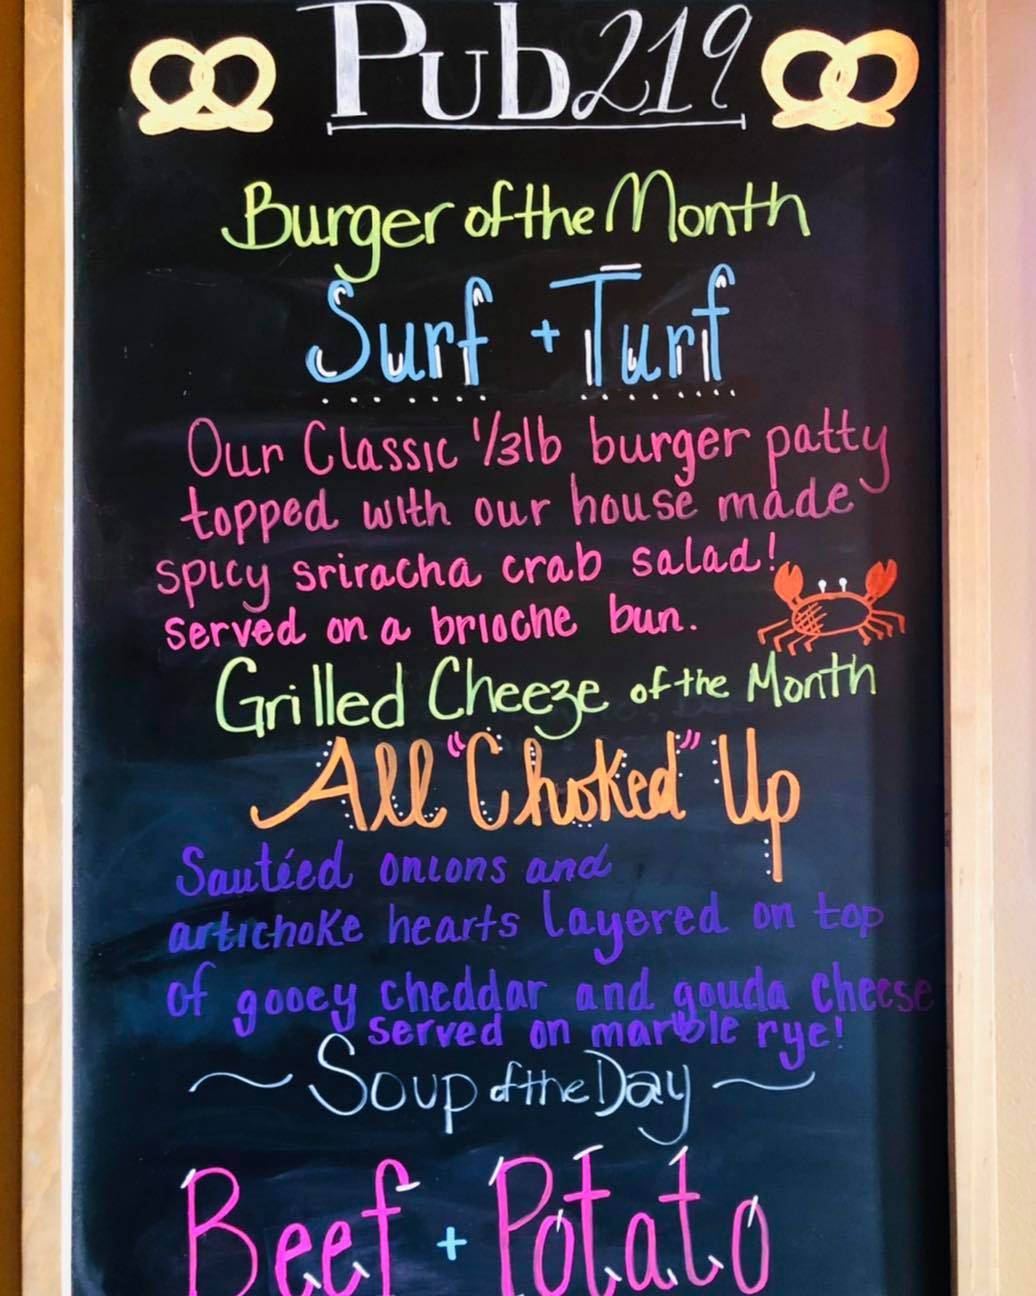 Pub 219
Burger of the Month
Surf + Turf
Our Classic 1/3lb burger patty
topped with our house made
spicy sriracha crab salad!
served on a brioche bun.
Grilled Cheeze of the Month
All "Choked" Up
Sautéed onions and
artichoke hearts layered on top
of gooey cheddar and gouda cheese
served on marble rye!
~ Soup of the Day ~
Beef + Potato